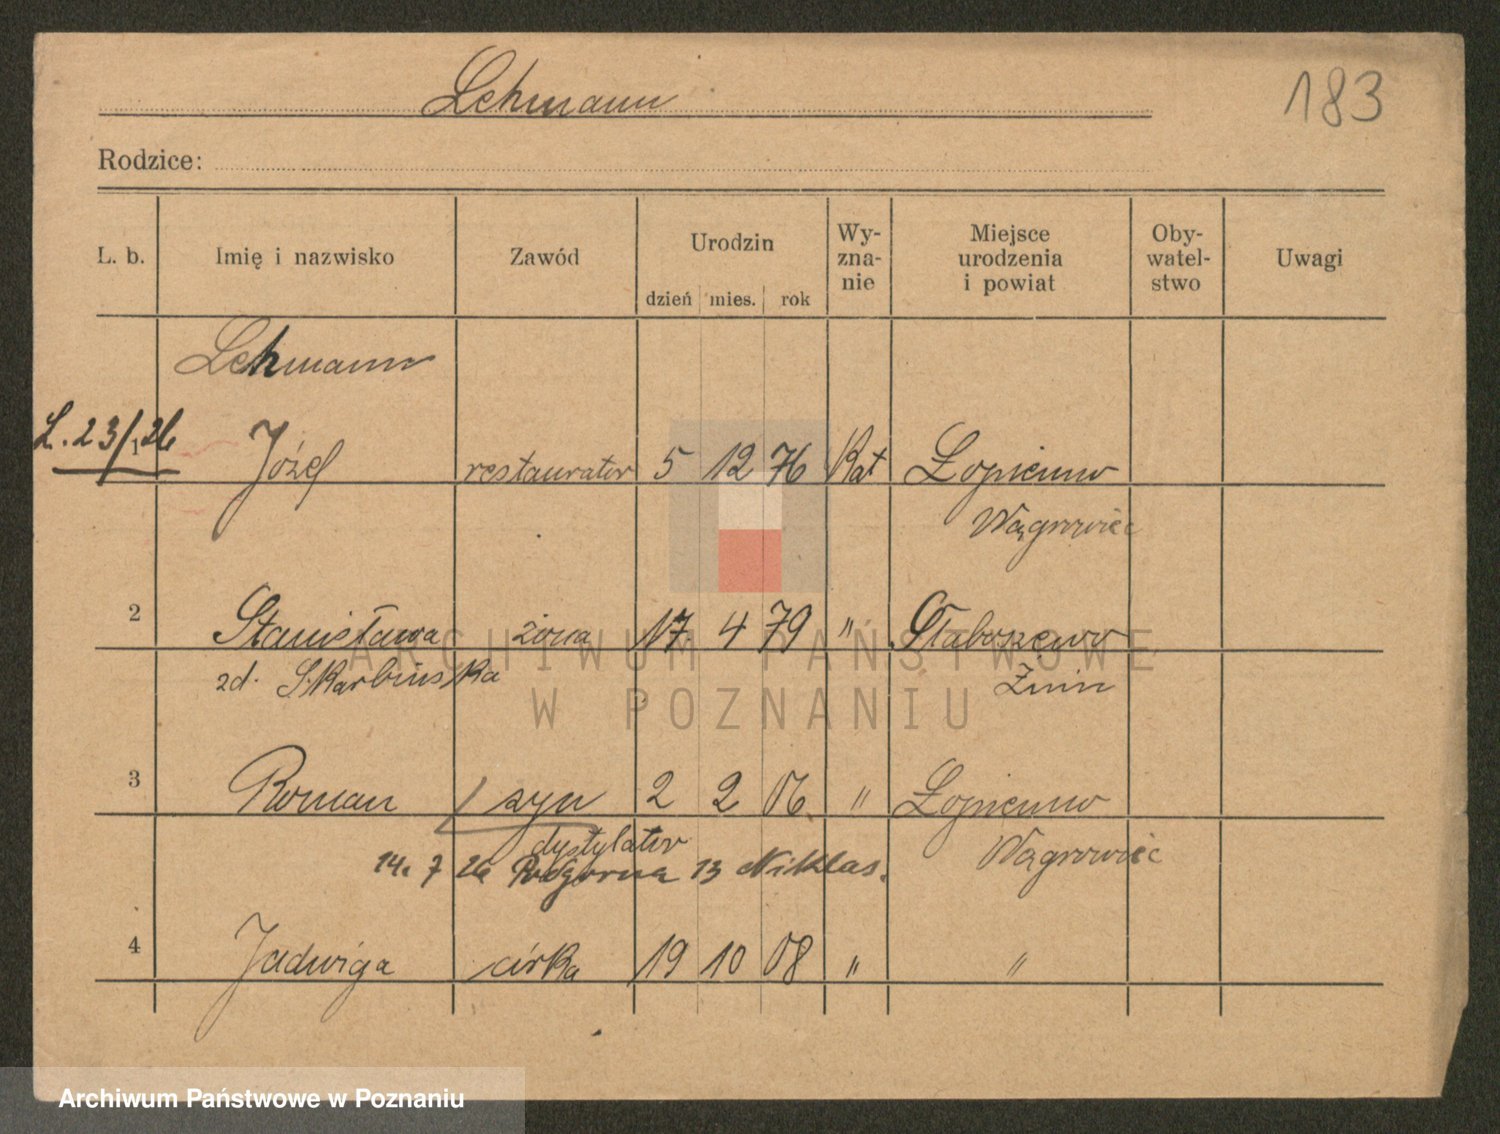 Lehmann
183
Rodzice:
L. b. Imię i nazwisko Zawód Urodzin dzień mies. rok Wy-zna-nie Miejsce urodzenia i powiat Oby-watel-stwo Uwagi
Lehmann
L. 23/26
1 Józef restaurator 5 12 76 Kat Łopienno
Wągrowiec
2 Stanisława żona 17. 4 79 " Słaboszewo
zd. Skarbinska Żnin
3 Roman syn 2 2 06 " Łopienno
dystylator Wągrowiec
14. 7 26 Podgorna 13 Niklas.
4 Jadwiga córka 19 10 08 " "
ARCHIWUM PAŃSTWOWE
W POZNANIU
Archiwum Państwowe w Poznaniu